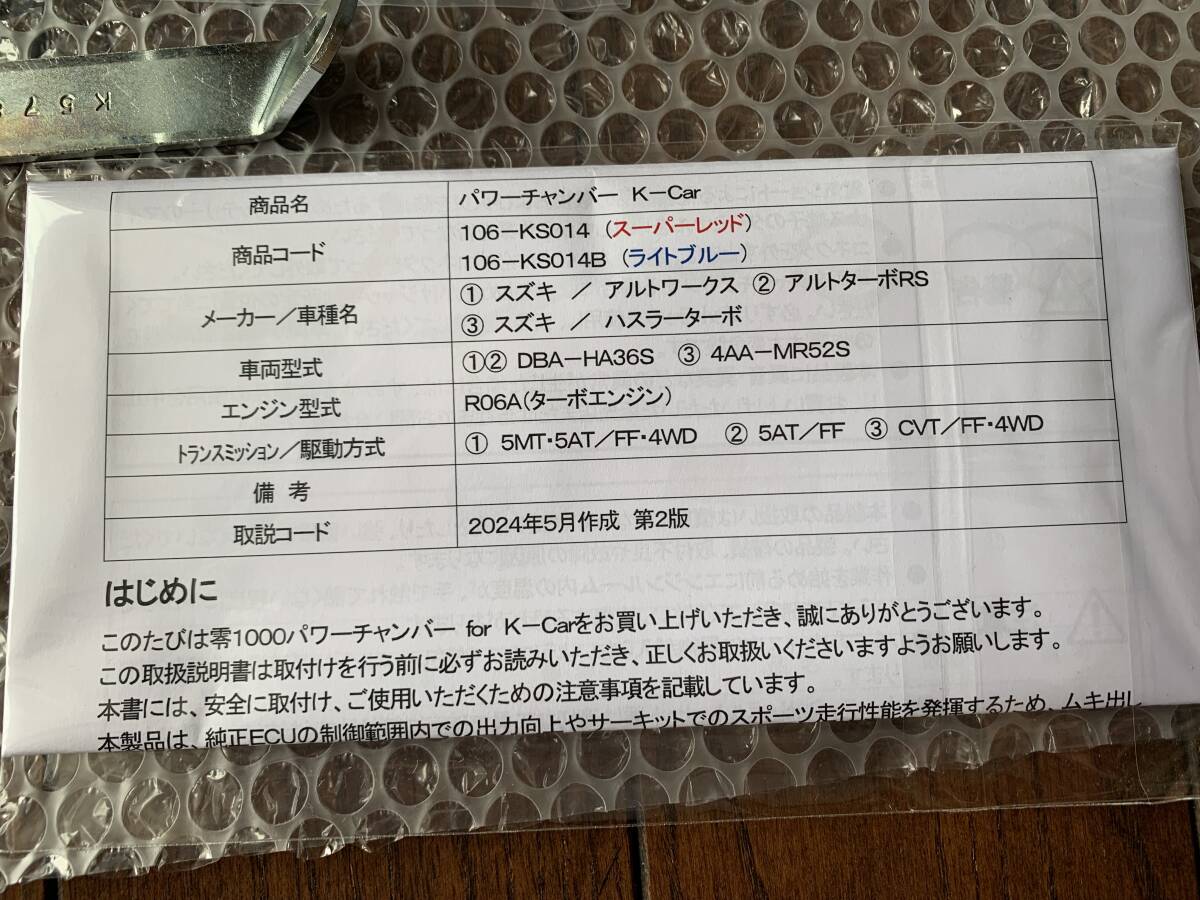 K573
商品名 パワーチャンバー K－Car
商品コード 106－KS014 (スーパーレッド)
106－KS014B (ライトブルー)
メーカー／車種名 ① スズキ ／ アルトワークス ② アルトターボRS
③ スズキ ／ ハスラーターボ
車両型式 ①② DBA－HA36S ③ 4AA－MR52S
エンジン型式 R06A(ターボエンジン)
トランスミッション／駆動方式 ① 5MT・5AT／FF・4WD ② 5AT／FF ③ CVT／FF・4WD
備 考
取説コード 2024年5月作成 第2版
はじめに
このたびは零1000パワーチャンバー for K－Carをお買い上げいただき、誠にありがとうございます。
この取扱説明書は取付けを行う前に必ずお読みいただき、正しくお取扱いくださいますようお願いします。
本書には、安全に取付け、ご使用いただくための注意事項を記載しています。
本製品は、純正ECUの制御範囲内での出力向上やサーキットでのスポーツ走行性能を発揮するため、ムキ出し